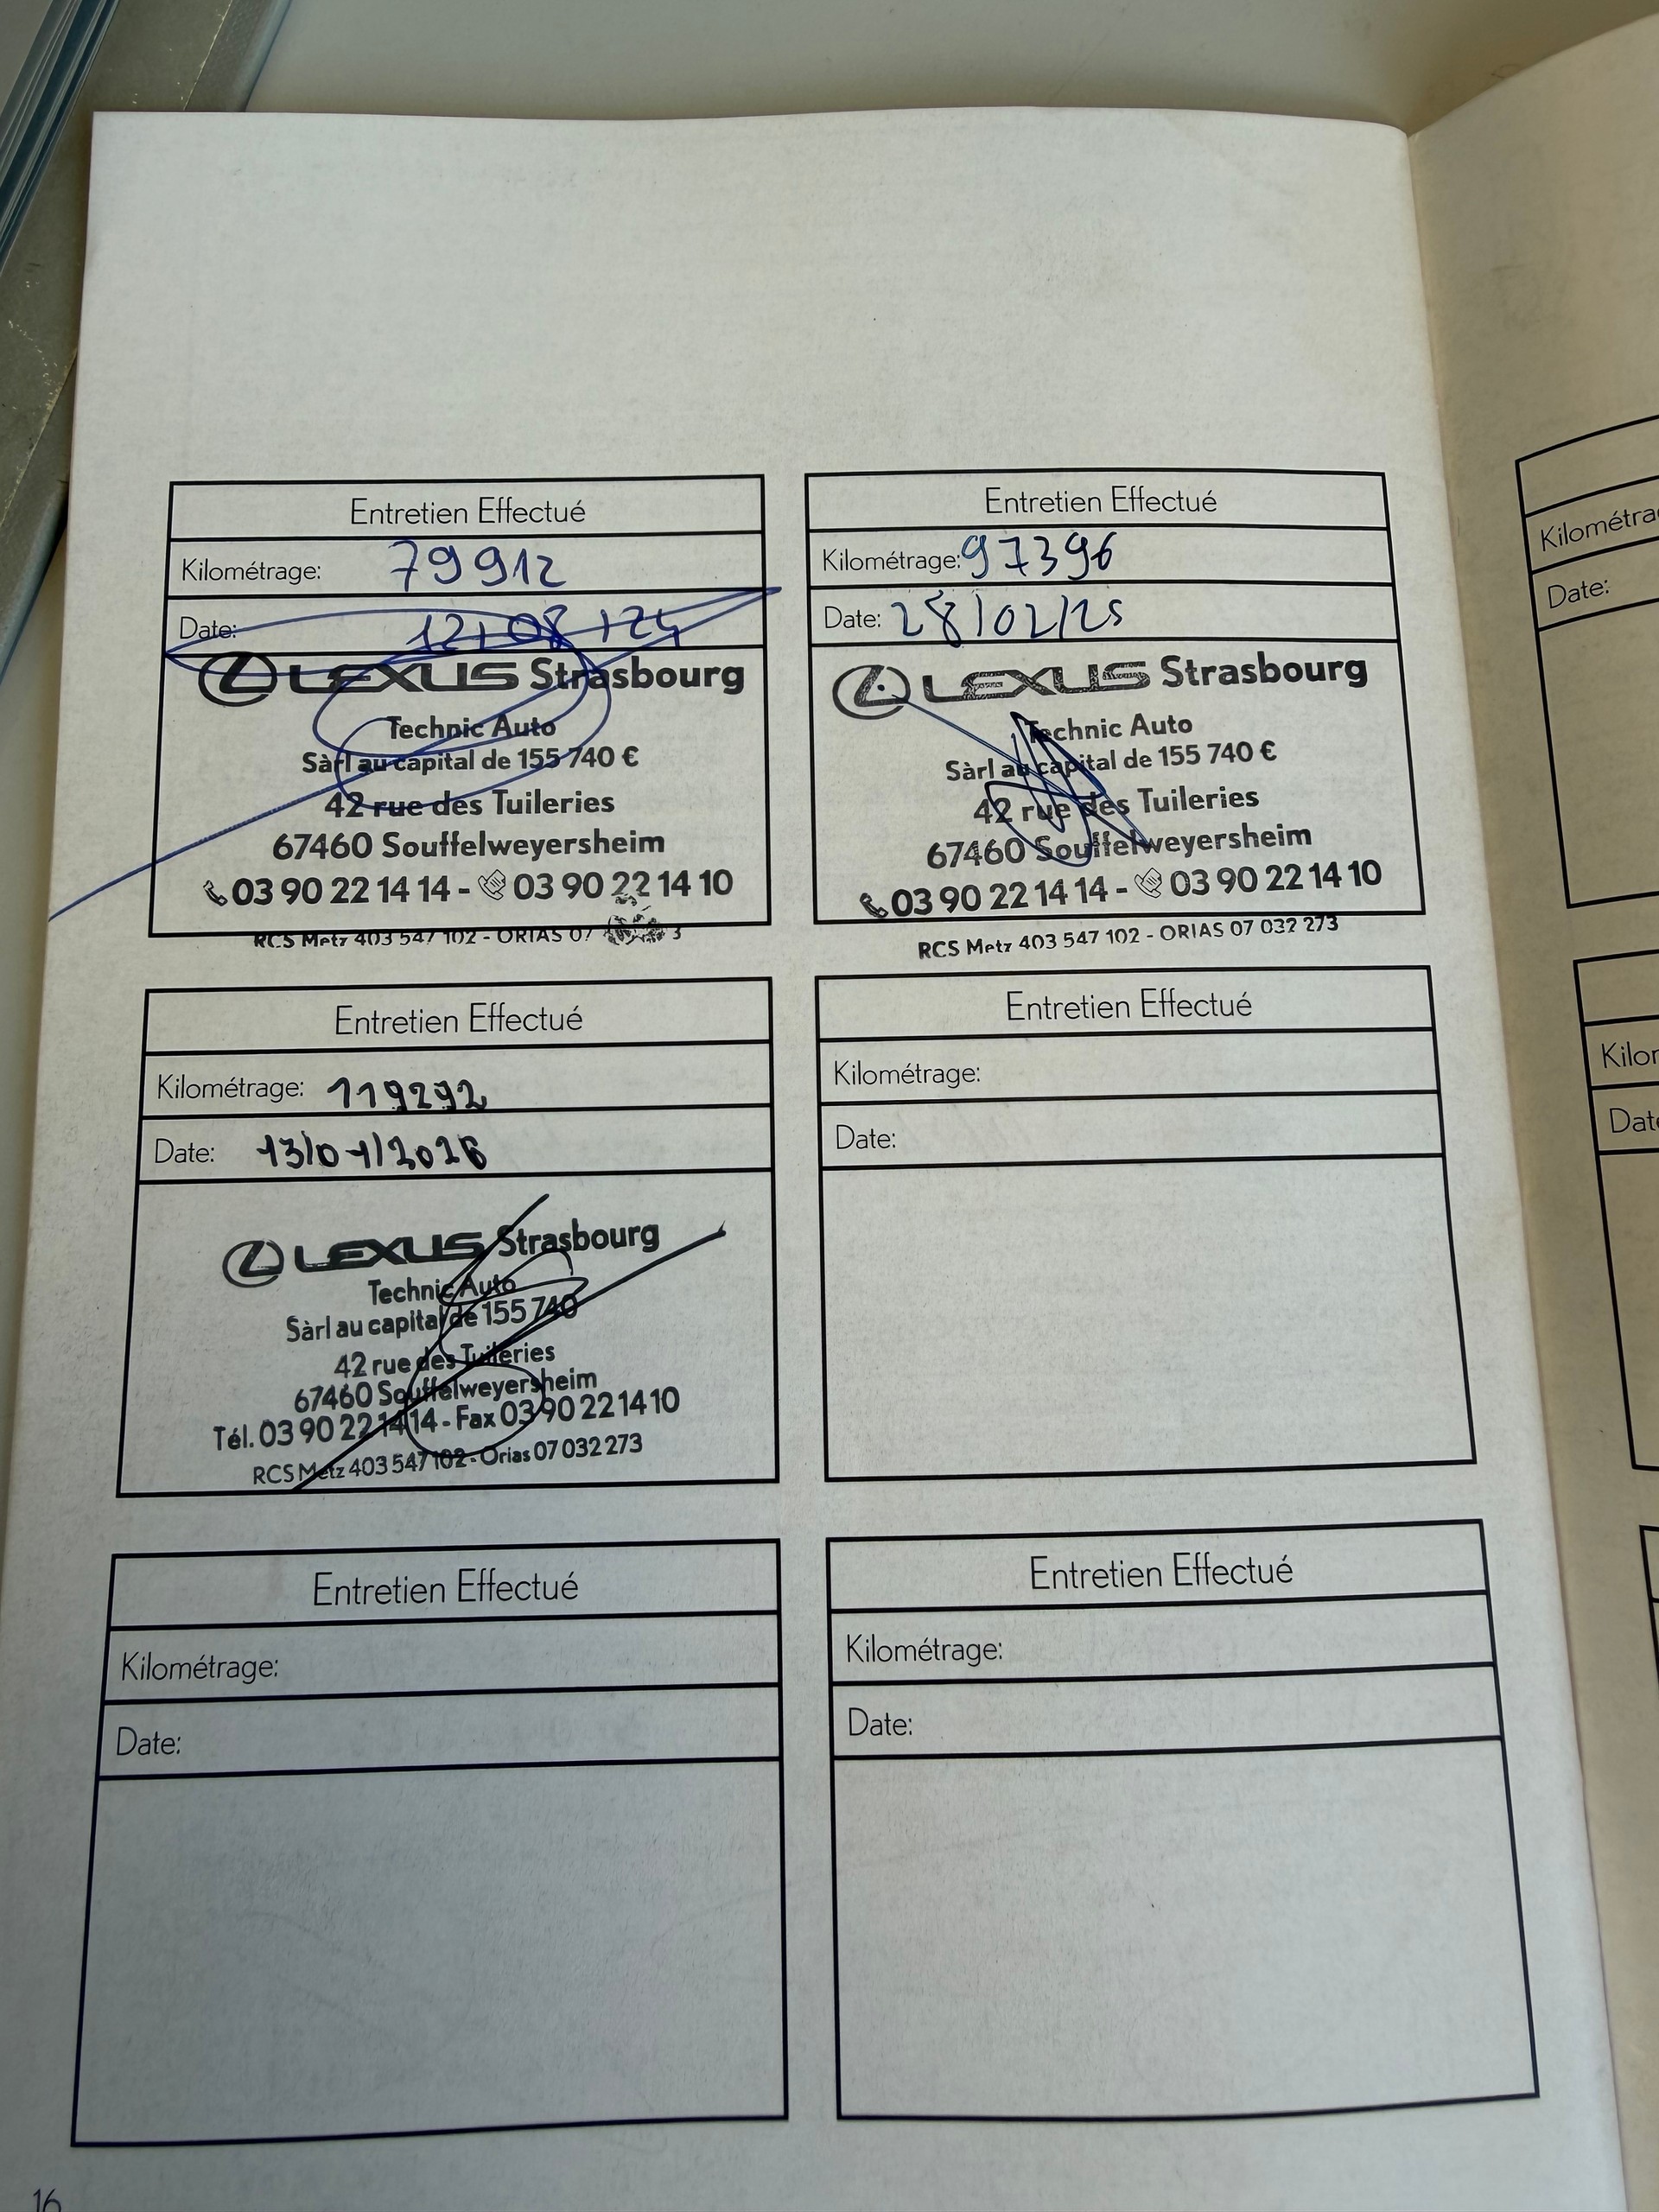 Entretien Effectué
Kilométrage: 79912
Date: 12/08/24
LEXUS Strasbourg
Technic Auto
Sàrl au capital de 155 740 €
42 rue des Tuileries
67460 Souffelweyersheim
03 90 22 14 14 - 03 90 22 14 10
RCS Metz 403 547 102 - ORIAS 07 3
Entretien Effectué
Kilométrage: 97396
Date: 28/02/25
LEXUS Strasbourg
Technic Auto
Sàrl au capital de 155 740 €
42 rue des Tuileries
67460 Souffelweyersheim
03 90 22 14 14 - 03 90 22 14 10
RCS Metz 403 547 102 - ORIAS 07 032 273
Entretien Effectué
Kilométrage: 119292
Date: 13/01/2026
LEXUS Strasbourg
Technic Auto
Sàrl au capital de 155 740
42 rue des Tuileries
67460 Souffelweyersheim
Tél. 03 90 22 14 14 - Fax 03 90 22 14 10
RCS Metz 403 547 102 - Orias 07 032 273
Entretien Effectué
Kilométrage:
Date:
Entretien Effectué
Kilométrage:
Date:
Entretien Effectué
Kilométrage:
Date:
16
Kilométra
Date:
Kilor
Date